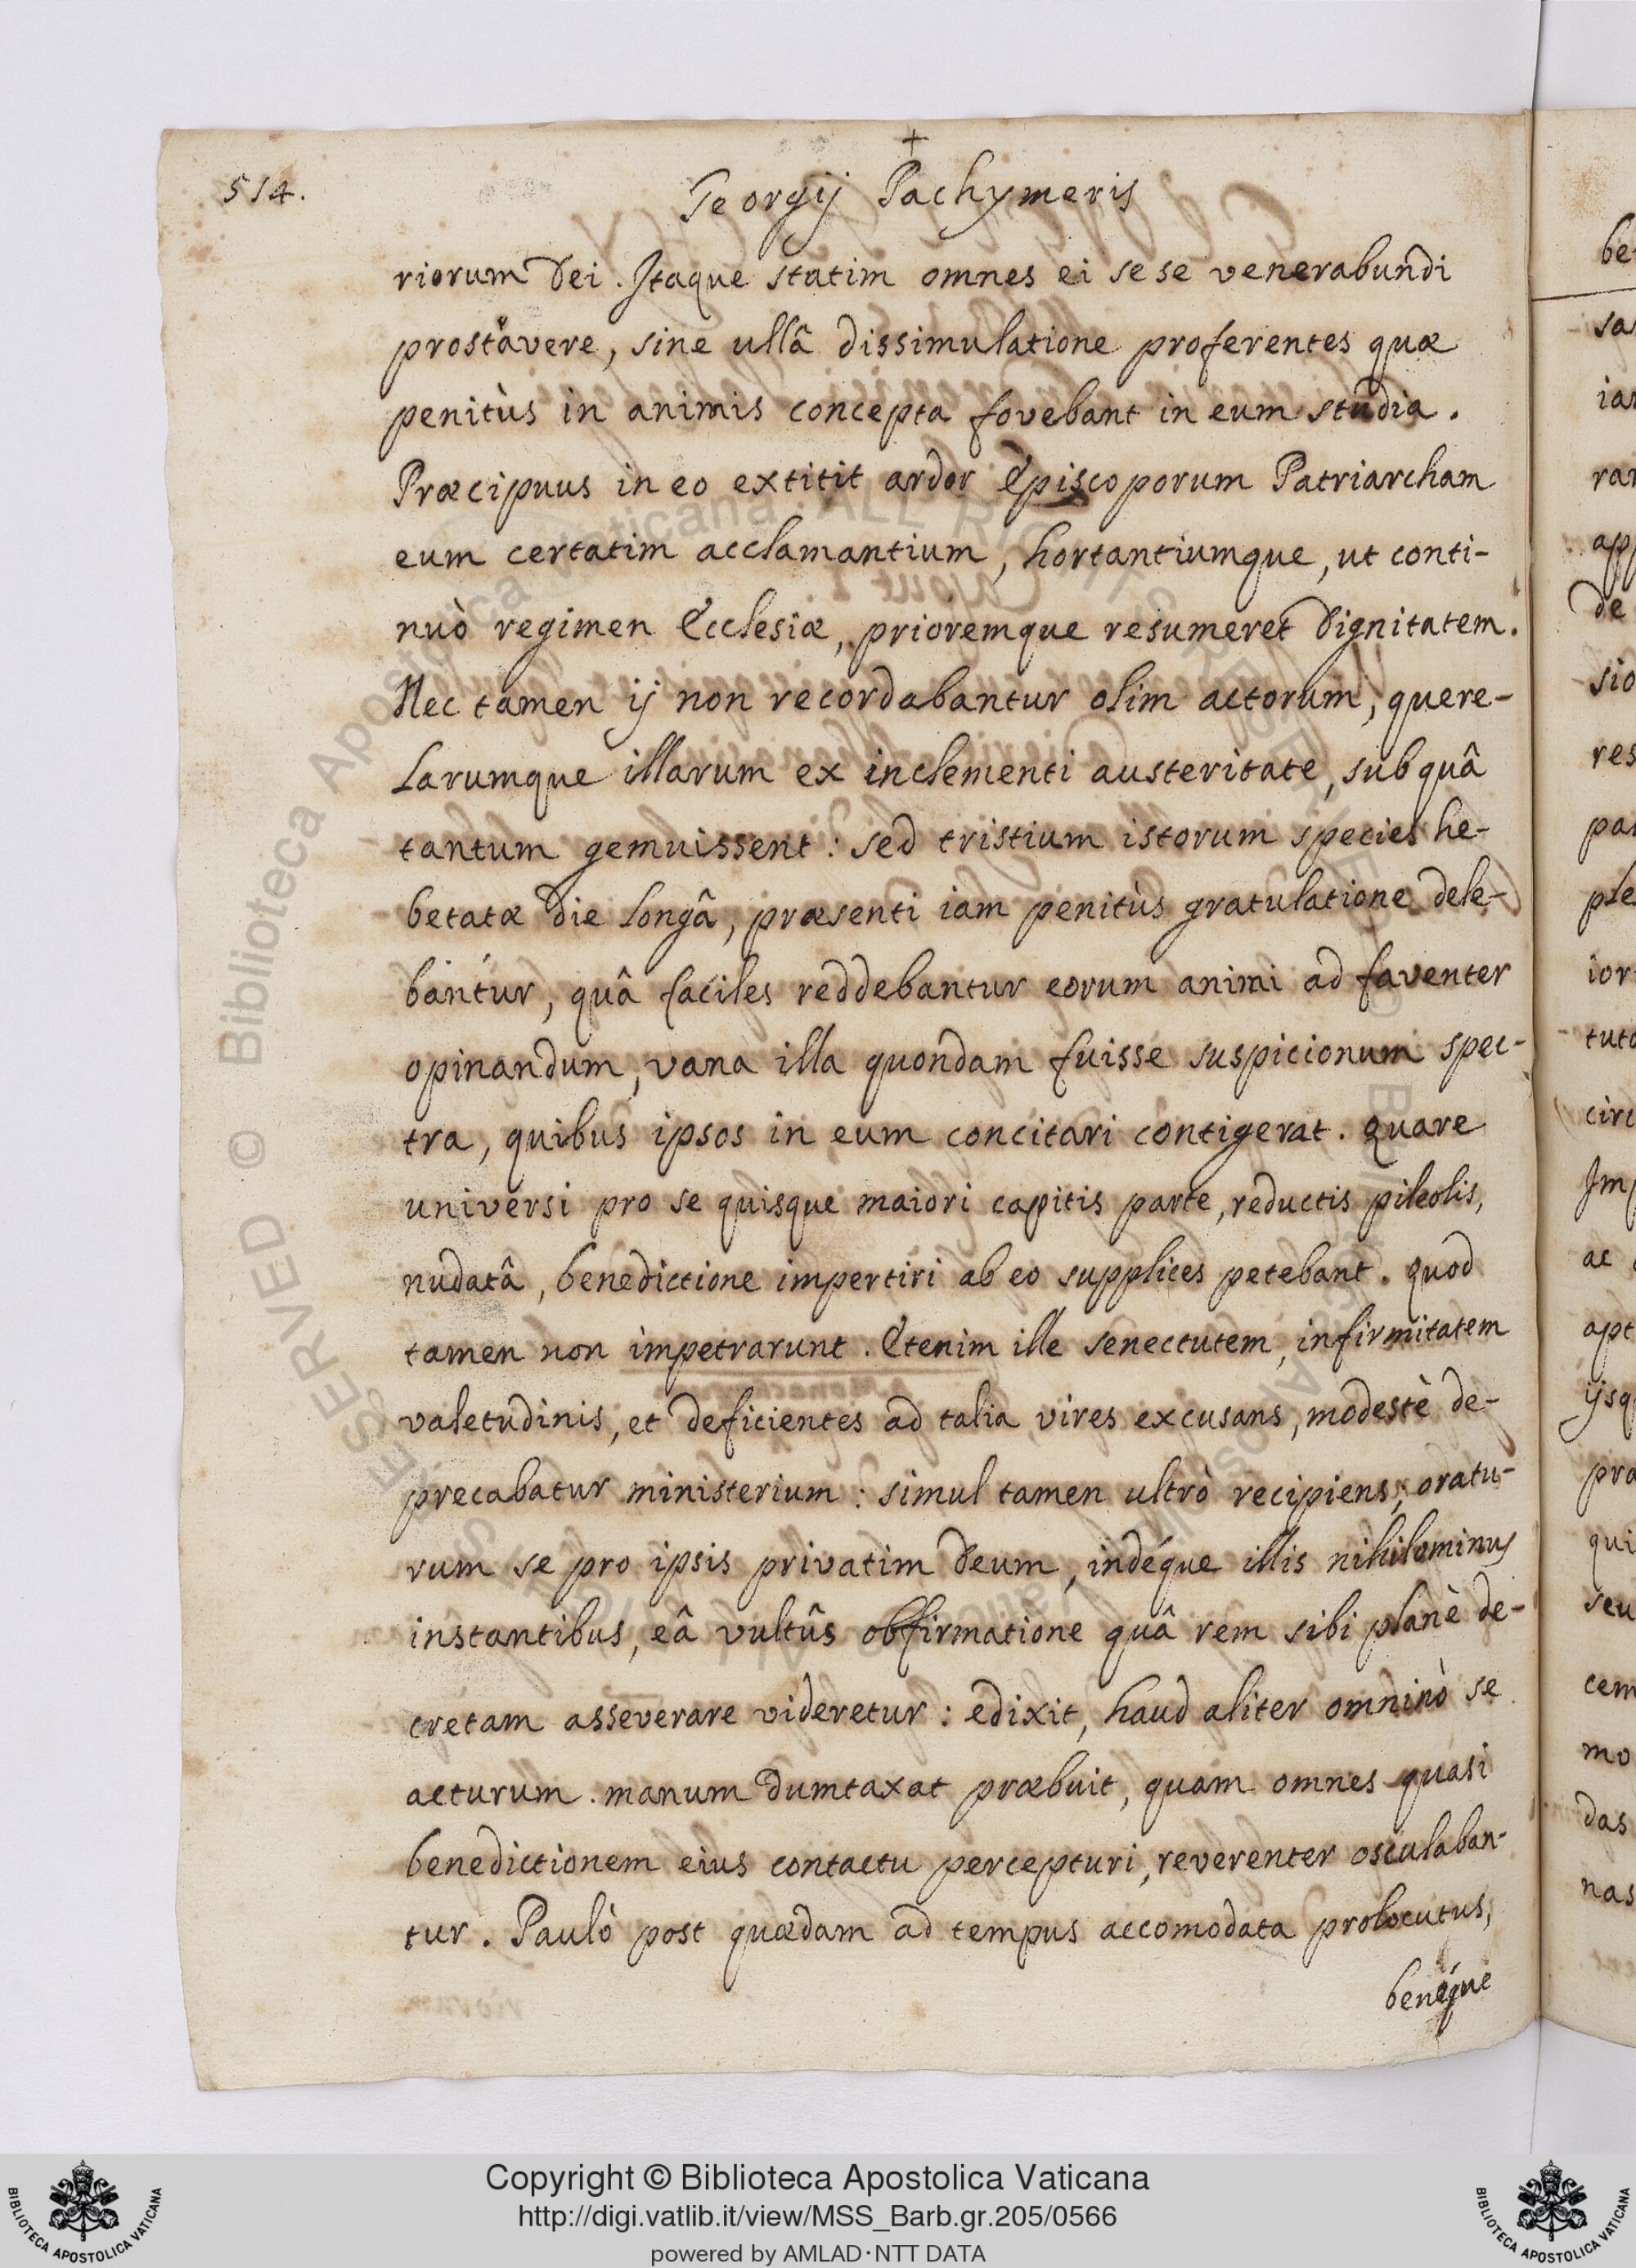 +
514.
Georgij Pachymeris
riorum Dei. Itaque statim omnes ei se se venerabundi
prostravere, sine ullâ dissimulatione proferentes quæ
penitùs in animis concepta fovebant in eum studia.
Præcipuus in eo extitit ardor Episcoporum Patriarcham
eum certatim acclamantium, hortantiumque, ut conti-
nuò regimen Ecclesiæ, prioremque resumeret dignitatem.
Nec tamen ij non recordabantur olim actorum, quere-
larumque illarum ex inclementi austeritate, sub quâ
tantum gemuissent: sed tristium istorum species he-
betatæ die longâ, præsenti iam penitùs gratulatione dele-
bantur, quâ faciles reddebantur eorum animi ad faventer
opinandum, vana illa quondam fuisse suspicionum spec-
tra, quibus ipsos in eum concitari contigerat. Quare
universi pro se quisque maiori capitis parte, reductis pileolis,
nudatâ, benedictione impertiri ab eo supplices petebant. Quod
tamen non impetrarunt. Etenim ille senectutem, infirmitatem
valetudinis, et deficientes ad talia vires excusans, modestè de-
precabatur ministerium: simul tamen ultrò recipiens, oratu-
rum se pro ipsis privatim Deum, indéque illis nihilominus
instantibus, eâ vultûs obfirmatione quâ rem sibi planè de-
cretam asseverare videretur: edixit, haud aliter omninò se
acturum. manum dumtaxat præbuit, quam omnes quasi
benedictionem eius contactu percepturi, reverenter osculaban-
tur. Paulò post quædam ad tempus accomodata prolocutus,
benéque
be
sa
iar
rar
app
de
sio
res
par
ple
ior
tuto
circ
Imp
ac
apt
ijsq
pra
qui
seu
cem
mo
das
nas
© Biblioteca Apostolica Vaticana · ALL RIGHTS RESERVED © Biblioteca Apostolica Vaticana · ALL RIGHTS RESERVED
Copyright © Biblioteca Apostolica Vaticana
http://digi.vatlib.it/view/MSS_Barb.gr.205/0566
powered by AMLAD·NTT DATA
BIBLIOTECA APOSTOLICA VATICANA
BIBLIOTECA APOSTOLICA VATICANA